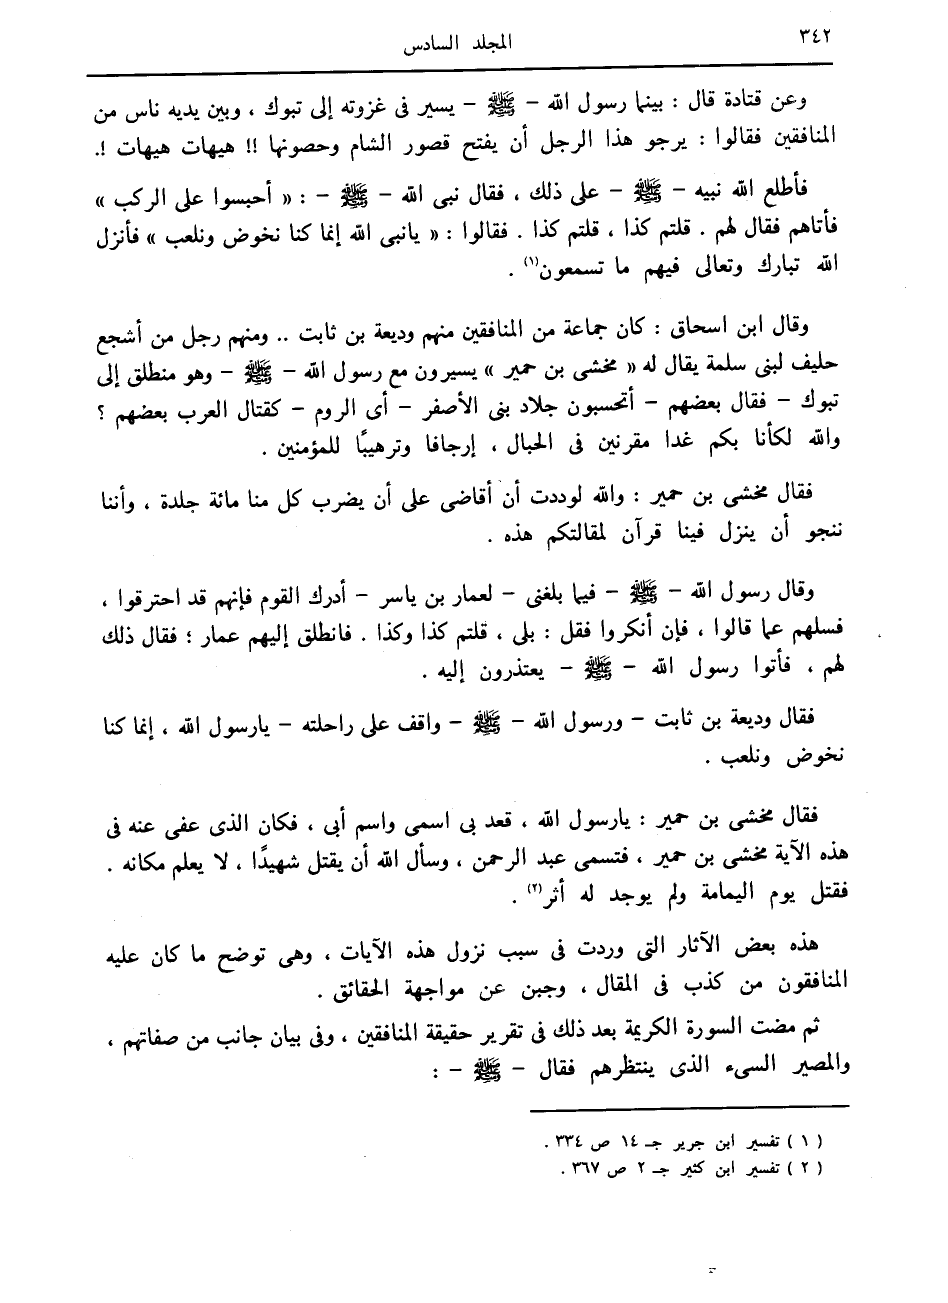 ٣٤٢
المجلد السادس
وعن قتادة قال : بينما رسول الله – ﷺ – يسير فى غزوته إلى تبوك ، وبين يديه ناس من
المنافقين فقالوا : يرجو هذا الرجل أن يفتح قصور الشام وحصونها !! هيهات هيهات !.
فأطلع الله نبيه – ﷺ – على ذلك ، فقال نبى الله – ﷺ – : « أحبسوا على الركب »
فأتاهم فقال لهم . قلتم كذا ، قلتم كذا . فقالوا : « يانبى الله إنما كنا نخوض ونلعب » فأنزل
الله تبارك وتعالى فيهم ما تسمعون(١) .
وقال ابن اسحاق : كان جماعة من المنافقين منهم وديعة بن ثابت .. ومنهم رجل من أشجع
حليف لبنى سلمة يقال له « مخشى بن حمير » يسيرون مع رسول الله – ﷺ – وهو منطلق إلى
تبوك – فقال بعضهم – أتحسبون جلاد بنى الأصفر – أى الروم – كقتال العرب بعضهم ؟
والله لكأنا بكم غدا مقرنين فى الحبال ، إرجافا وترهيبًا للمؤمنين .
فقال مخشى بن حمير : والله لوددت أن أقاضى على أن يضرب كل منا مائة جلدة ، وأننا
ننجو أن ينزل فينا قرآن لمقالتكم هذه .
وقال رسول الله – ﷺ – فيما بلغنى – لعمار بن ياسر – أدرك القوم فإنهم قد احترقوا ،
فسلهم عما قالوا ، فإن أنكروا فقل : بلى ، قلتم كذا وكذا . فانطلق إليهم عمار ؛ فقال ذلك
لهم ، فأتوا رسول الله – ﷺ – يعتذرون إليه .
فقال وديعة بن ثابت – ورسول الله – ﷺ – واقف على راحلته – يارسول الله ، إنما كنا
نخوض ونلعب .
فقال مخشى بن حمير : يارسول الله ، قعد بى اسمى واسم أبى ، فكان الذى عفى عنه فى
هذه الآية مخشى بن حمير ، فتسمى عبد الرحمن ، وسأل الله أن يقتل شهيدًا ، لا يعلم مكانه .
فقتل يوم اليمامة ولم يوجد له أثر(٢) .
هذه بعض الآثار التى وردت فى سبب نزول هذه الآيات ، وهى توضح ما كان عليه
المنافقون من كذب فى المقال ، وجبن عن مواجهة الحقائق .
ثم مضت السورة الكريمة بعد ذلك فى تقرير حقيقة المنافقين ، وفى بيان جانب من صفاتهم ،
والمصير السىء الذى ينتظرهم فقال – ﷺ – :
( ١ ) تفسير ابن جرير جـ ١٤ ص ٣٣٤ .
( ٢ ) تفسير ابن كثير جـ ٢ ص ٣٦٧ .